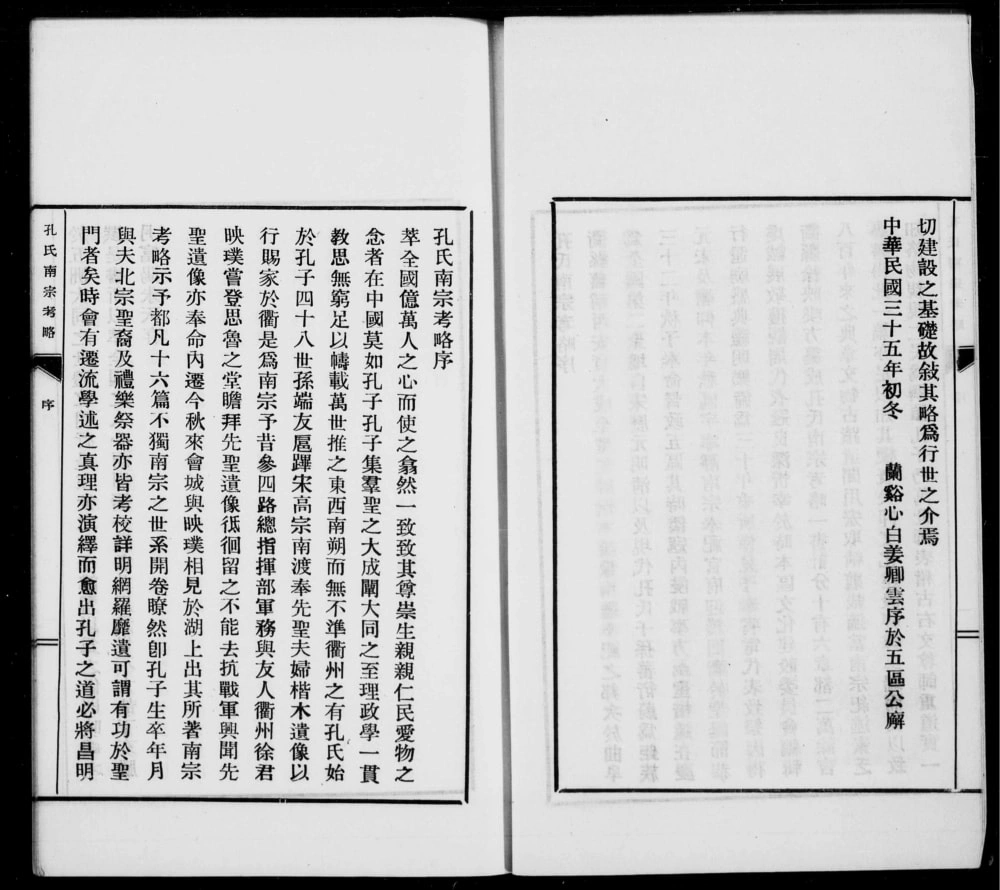 切建設之基礎故敍其略爲行世之介焉
中華民國三十五年初冬　蘭谿心白姜卿雲序於五區公廨
孔氏南宗考略序
萃全國億萬人之心而使之翕然一致致其尊崇生親親仁民愛物之
念者在中國莫如孔子孔子集羣聖之大成闡大同之至理政學一貫
教思無窮足以幬載萬世推之東西南朔而無不準衢州之有孔氏始
於孔子四十八世孫端友扈蹕宋高宗南渡奉先聖夫婦楷木遺像以
行賜家於衢是爲南宗予昔參四路總指揮部軍務與友人衢州徐君
映璞嘗登思魯之堂瞻拜先聖遺像徘徊留之不能去抗戰軍興聞先
聖遺像亦奉命內遷今秋來會城與映璞相見於湖上出其所著南宗
考略示予都凡十六篇不獨南宗之世系開卷瞭然卽孔子生卒年月
與夫北宗聖裔及禮樂祭器亦皆考校詳明網羅靡遺可謂有功於聖
門者矣時會有遷流學述之真理亦演繹而愈出孔子之道必將昌明
孔氏南宗考略
序